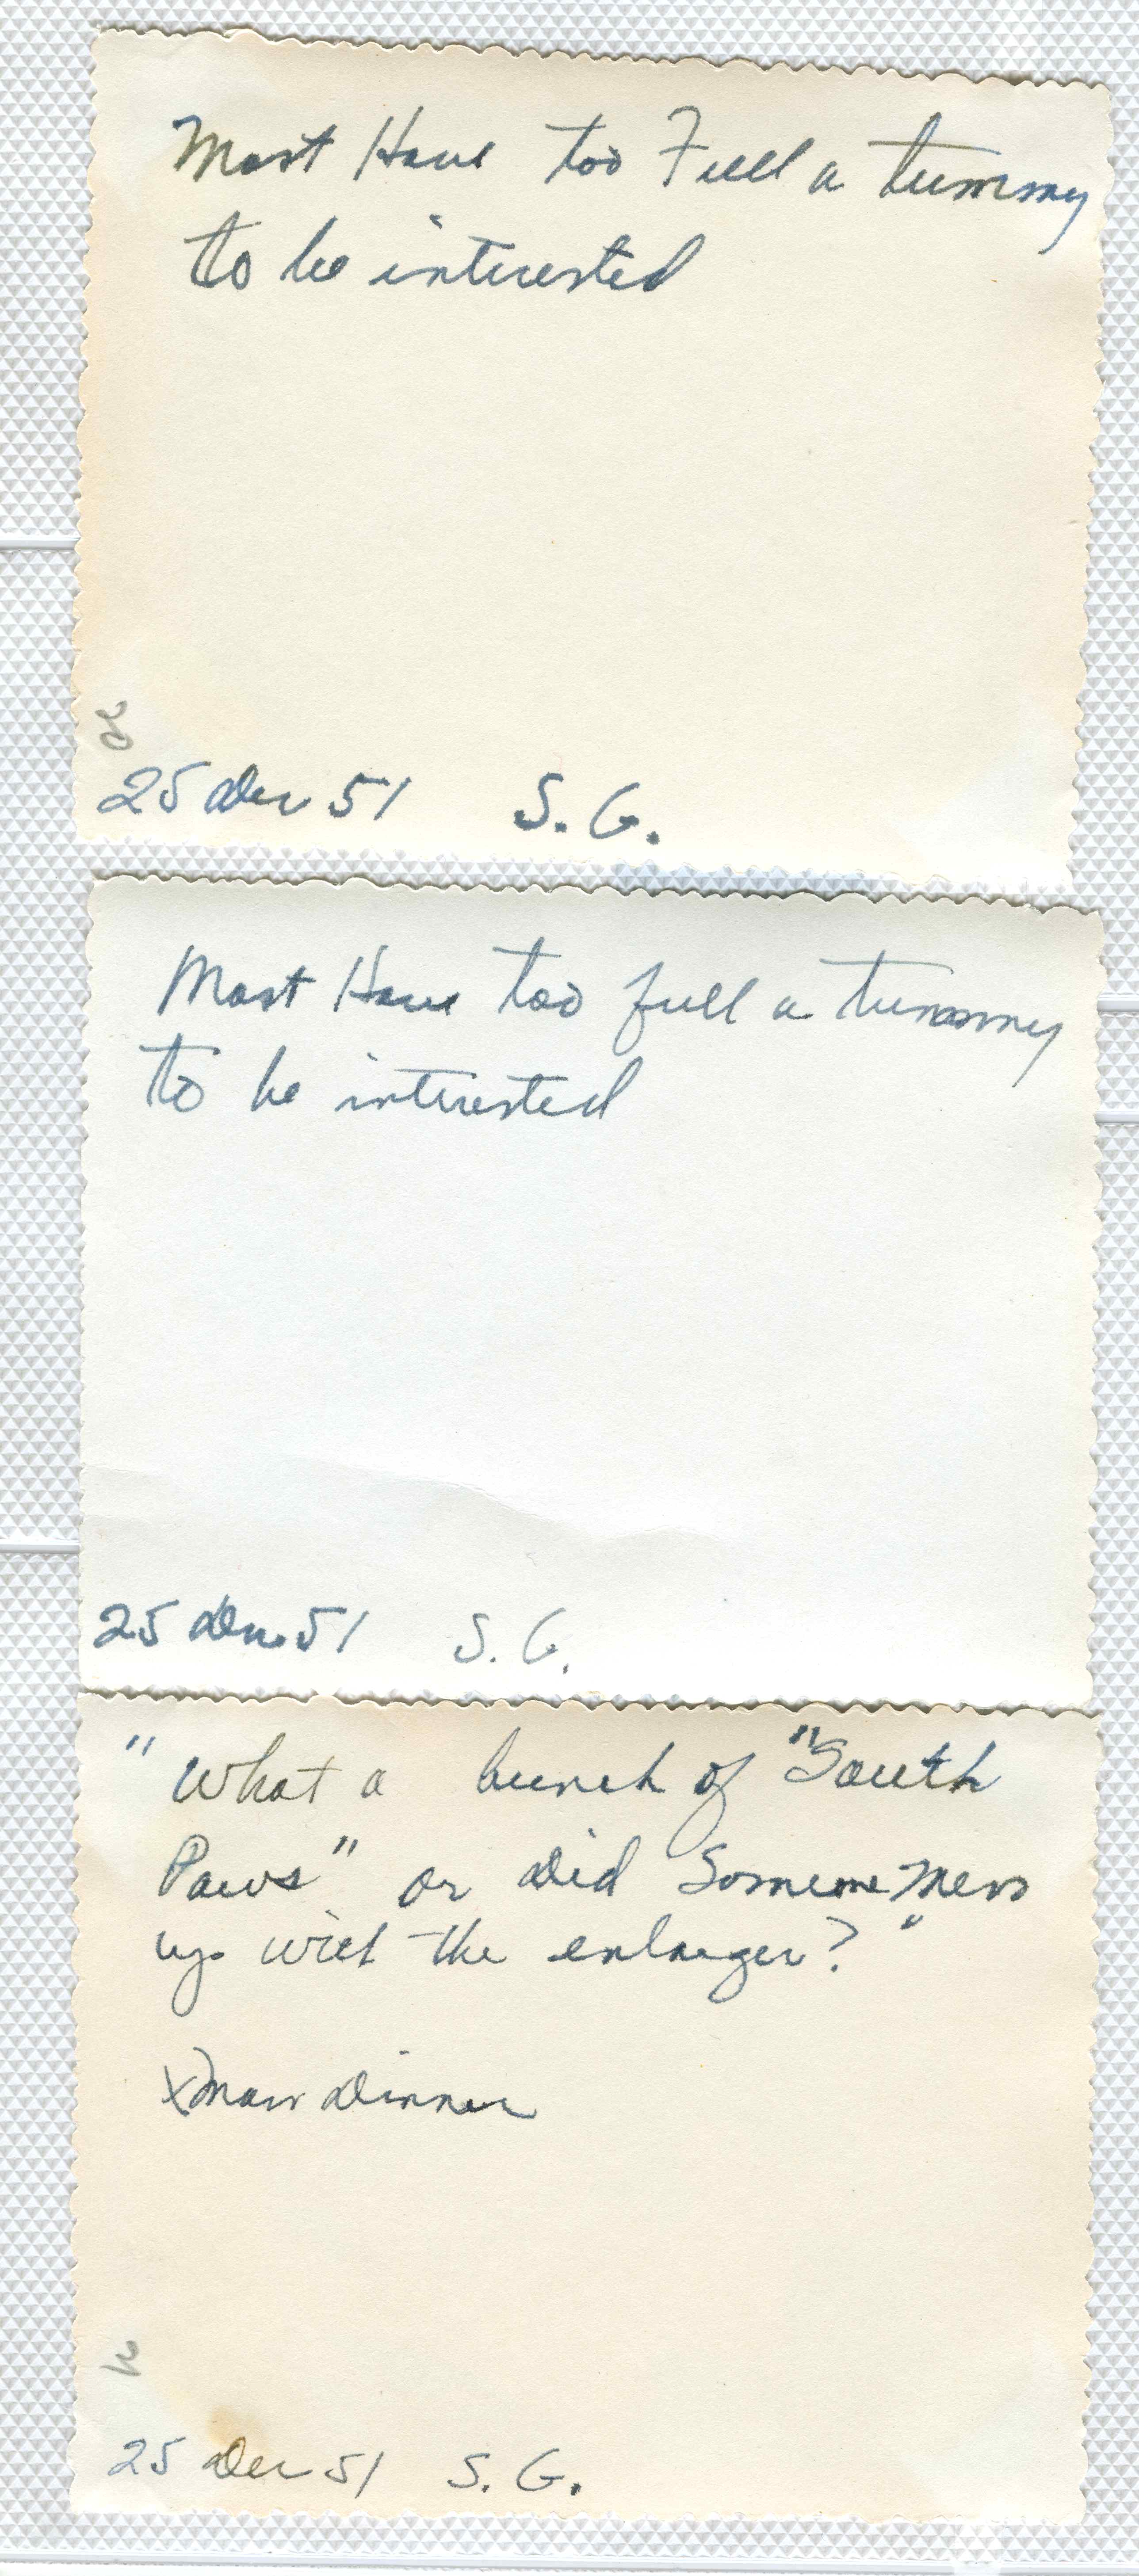 Most Have too Full a tummy
to be interested
25 Dec 51 S. G.
Most Have too full a tummy
to be interested
25 Dec. 51 S. G.
"What a bunch of "South
Paws" or Did Someone Mess
up with the enlarger?"
Xmas Dinner
25 Dec 51 S. G.